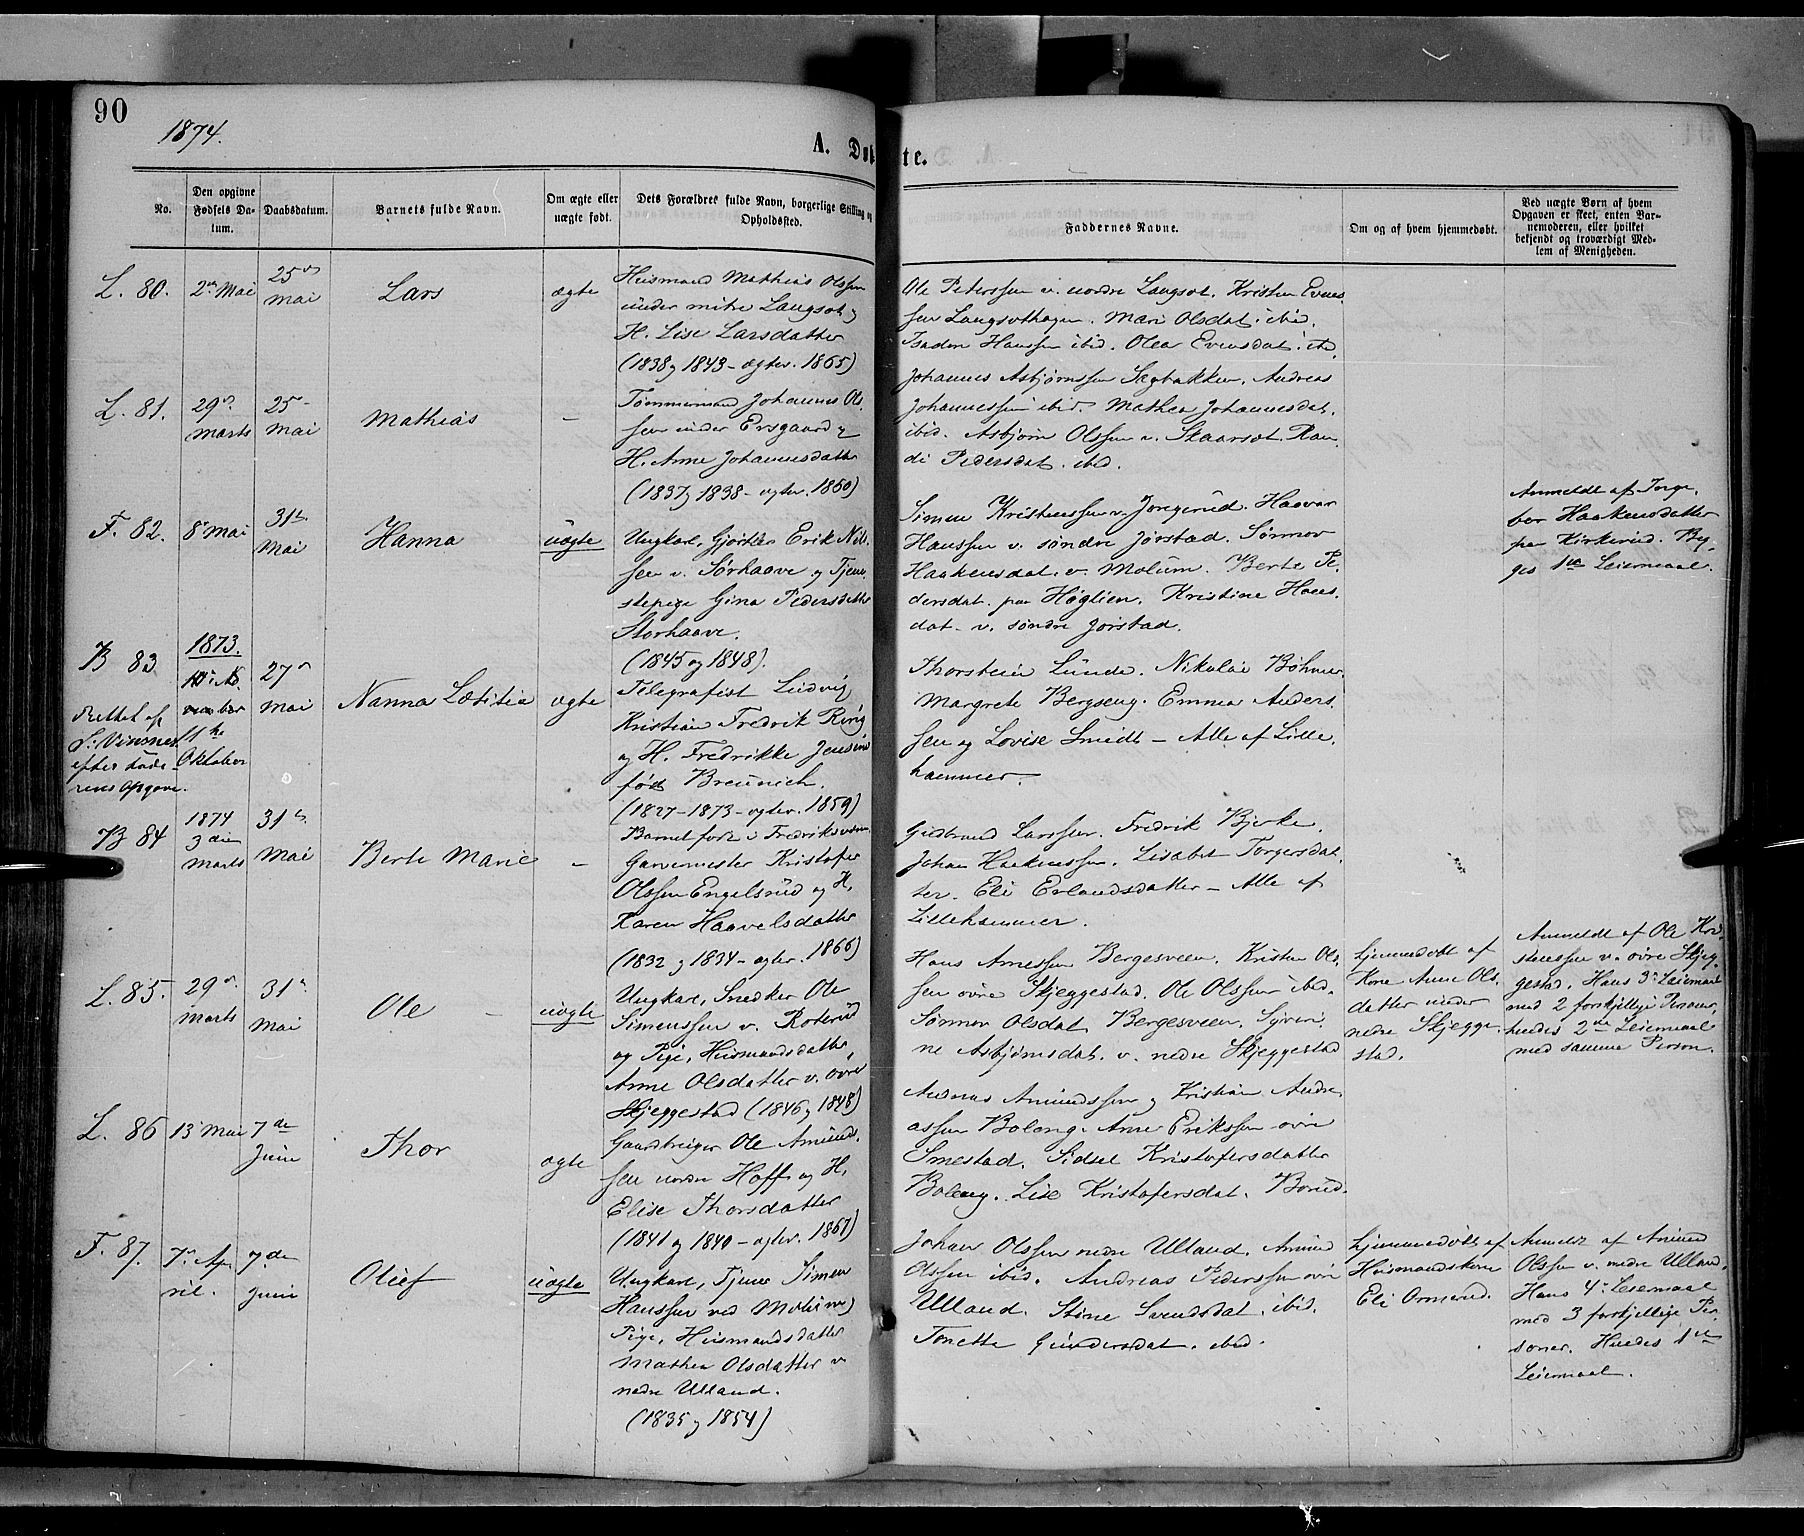 90
1874.
A. Døbte.
No.
Den opgivne Fødsels Datum.
Daabsdatum.
Barnets fulde Navn.
Om ægte eller uægte født.
Dets Forældres fulde Navn, borgerlige Stilling og Opholdssted.
Faddernes Navne.
Om og af hvem hjemmedøbt.
Ved uægte Børn af hvem Opgaven er skeet, enten Barnemoderen, eller hvilket bekjendt og troværdigt Medlem af Menigheden.
L. 80.
2n Mai
25de
Mai
Lars
ægte
Husmand Mathias Olssen
under Langsøt og
H. Lise Larsdatter
(1838 og 1843 - ægtev. 1865)
Ole Peterssen v. nordre Langsøt. Kristen Evens-
sen Langsøthagen. Mari Olsdat. ibid.
Hanssen ibid. Olea Evensdat. ibid.
L. 81.
29n
Marts
25
Mai
Mathias
-
Tømmermand Johannes Ols-
sen under Ersgaard og
H. Anne Johannesdatter
(1837 og 1838 - ægtev. 1860)
Johannes Asbjørnssen Sagbakken. Andreas
Johannessen ibid. Mathea Johannesdat.
ibid. Asbjørn Olssen v. Skaarsøt. Ran-
di Pedersdat. ibid.
F. 82.
8 Mai
31te
Mai
Hanna
uægte
Ungkarl, Gjørtler Erik Nil-
sen v. Sørhaave og Tjene-
stepige Gina Pedersdatter
Storhaave.
(1845 og 1848).
Simen Kristenssen v. Jorgerud. Haavar
Hanssen v. søndre Jørstad. Sønnøv
Haakensdat. v. Molum. Berte Pe-
dersdat. paa Høglien. Kristine Hans-
dat. v. søndre Jørstad.
Anmeldt af Torge-
bor Haakensdatter
paa Kirkerud. Beg-
ges 1ste Leiermaal.
B 83
Rettet af
S. Vinsnes
efter Fade-
rens Opgave.
1873.
10de No-
vember
11te
Oktober
27n
Mai
Nanna Lætitia
ægte
Telegrafist Ludvig
Kristian Fredrik Ring
og H. Fredrikke Jensine
fød Breunich.
(1827 - 1873 - ægtev. 1859)
Thorstein Lunde. Nikolai Bøhmer.
Margrete Bergseng. Emma Anders-
sen og Lovise Smedt - Alle af Lille-
hammer.
B 84
1874
3die
Marts
31te
Mai
Berte Marie
-
Barnet født i Fredriksværn
Garvermester Kristofer
Olssen Engelsrud og H.
Karen Haavelsdatter
(1832 og 1834 - ægtev. 1866)
Gudbrand Larssen. Fredrik Bjerke.
Johan Haakenssen. Lisabet Torgersdat-
ter. Eli Erlandsdatter - Alle af
Lillehammer.
L. 85.
29n
Marts
31n
Mai
Ole
uægte
Ungkarl, Snedker Ole
Simenssen v. Roterud
og Pige, Husmandsdatter
Anne Olsdatter v. øvre
Skjeggestad (1846 og 1848)
Hans Arnessen Bergesveen. Kristen Ols-
sen øvre Skjeggestad. Ole Olssen ibid.
Sønnøv Olsdat. Bergesveen. Syveri-
ne Asbjørnsdat. v. nedre Skjeggestad
hjemmedøbt af
Kone Anne Ols-
datter under
nedre Skjegge-
stad.
Anmeldt af Ole Kri-
stenssen v. øvre Skjeg-
gestad. Hans 3. Leiermaal
med 2 forskjellige Personer,
hendes 2det Leiermaal
med samme Person.
L. 86
13 Mai
7de
Juni
Thor
ægte
Gaardbruger Ole Amund-
sen nordre Hoff og H.
Elise Thorsdatter
(1841 og 1840 - ægtev. 1867)
Amundssen og Kristian Andre-
assen Boleng. Arne Erikssen øvre
Smestad. Sidsel Kristofersdatter
Boleng. Lise Kristofersdat. Borud.
F. 87.
7n Ap-
ril.
7de
Juni
Oluf
uægte
Ungkarl, Tjener Simen
Hanssen ved Molum og
Pige, Husmandsdatter
Mathea Olsdatter v
nedre Ulland.
(1835 og 1854)
Johan Olssen nedre Ulland. Amund
Olssen ibid. Andreas Pederssen øvre
Ulland. Stine Svendsdat. ibid.
Tonette Gundersdat. ibid.
hjemmedøbt af
Husmandskone
Eli Ormerud.
Anmeldt af Amund
Olssen v. nedre Ulland.
Hans 4. Leiermaal
med 3 forskjellige Per-
soner. Hendes 1ste
Leiermaal.